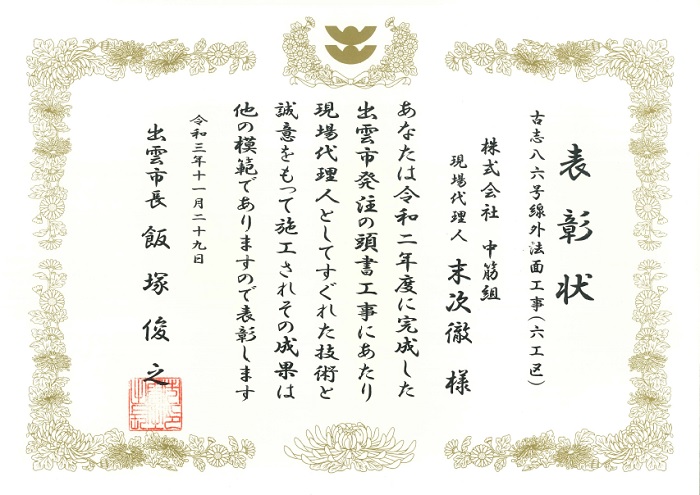 表彰状
古志八六号線外法面工事(六工区)
株式会社 中筋組
現場代理人 末次徹 様
あなたは令和二年度に完成した
出雲市発注の頭書工事にあたり
現場代理人としてすぐれた技術と
誠意をもって施工されその成果は
他の模範でありますので表彰します
令和三年十一月二十九日
出雲市長 飯塚俊之